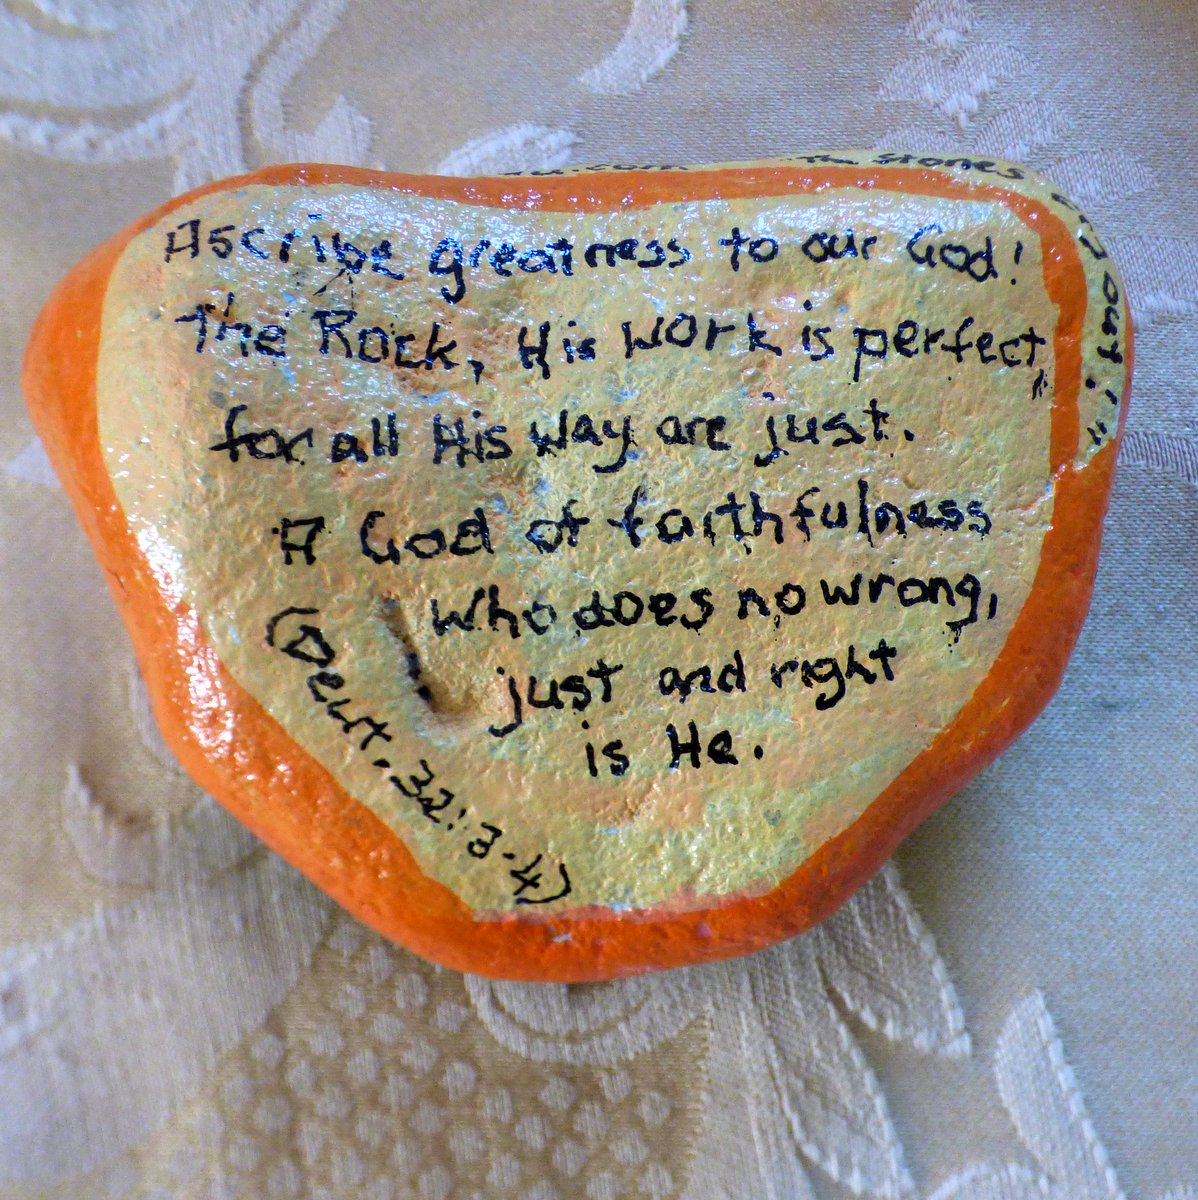 Ascribe greatness to our God!
The Rock, His work is perfect,
for all His way are just.
A God of faithfulness
who does no wrong,
just and right
is He.
(Deut. 32:3-4)
.com
The Stones
Cry Out